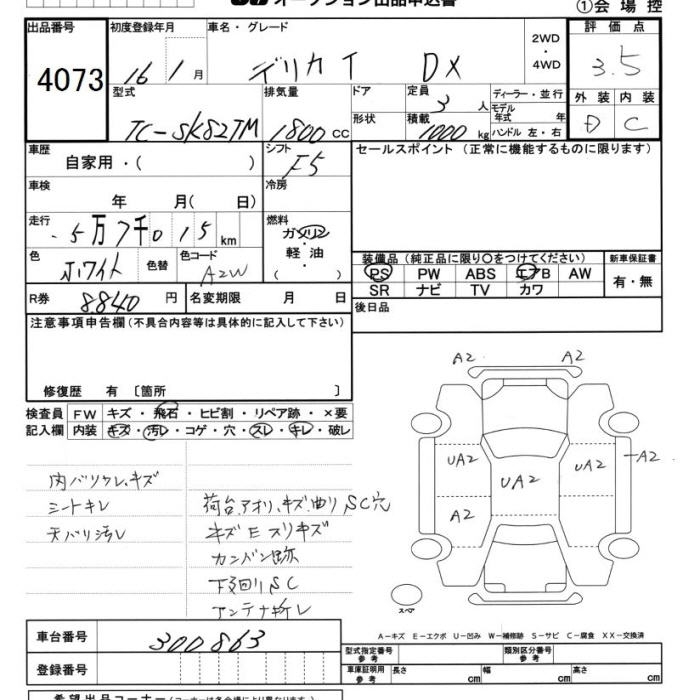 オークション出品申込書
①会場控
出品番号
初度登録年月
車名・グレード
2WD
・
4WD
評価点
4073
16 1月
デリカ DX
3.5
型式
排気量
ドア
定員
ディーラー・並行
外装 内装
TC-SK82TM
1800 cc
形状
3人
モデル年式 年
積載
1000 kg
ハンドル 左・右
D C
車歴
自家用・( )
シフト
F5
セールスポイント (正常に機能するものに限ります)
車検
年 月( 日)
冷房
走行
5万7千015km
燃料
ガソリン
・
軽油
・
( )
色
ホワイト
色替
色コード
A2W
装備品 (純正品に限り○をつけてください)
新車保証書
PS PW ABS エアB AW
有・無
SR ナビ TV カワ
R券
8.840 円
名変期限 月 日
後日品
注意事項申告欄 (不具合内容等は具体的に記入して下さい)
修復歴 有 〔箇所 〕
検査員 FW キズ・飛石・ヒビ割・リペア跡・×要
記入欄 内装 キズ・汚レ・コゲ・穴・スレ・キレ・破レ
内バリワレ、キズ
シートキレ
天バリ汚レ
荷台、アオリ、キズ、曲り SC穴
キズEスリキズ
カンバン跡
下廻りSC
アンテナ折レ
A2 A2
UA2 UA2 UA2 A2
A2
スペア
A-キズ E-エクボ U-凹み W-補修跡 S-サビ C-腐食 XX-交換済
車台番号
300863
型式指定番号
参考
類別区分番号
参考
登録番号
車庫証明用
参考
長さ cm 幅 cm 高さ cm
希望出品コーナー (コーナーは各会場により異なります)